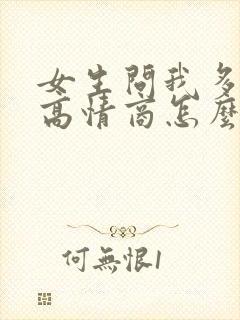 女生問我多
高情商怎麼
何無恨1